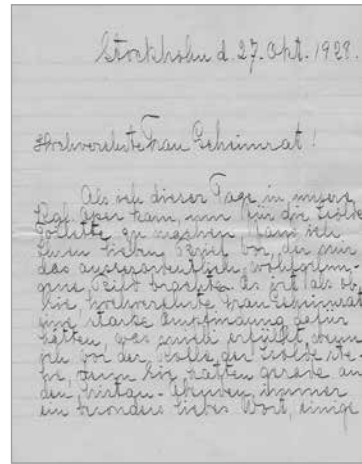 Stockholm d. 27. Okt. 1928.
Hochverehrte Frau Geheimrat!
Als ich dieser Tage in unsere
Kgl. Oper kam, um für die Isolde
Toilette zu machen, fand ich
Ihren lieben Brief vor, der mir
das ausserordentlich wohlgelun-
gene Bild brachte. Es ist als ob
Sie, hochverehrte Frau Geheimrat
eine starke Empfindung dafür
hätten, was mich erfüllt, wenn
ich vor der Rolle der Isolde ste-
he, denn Sie hatten gerade an
den Tristan-Abenden immer
ein besonders liebes Wort, einige